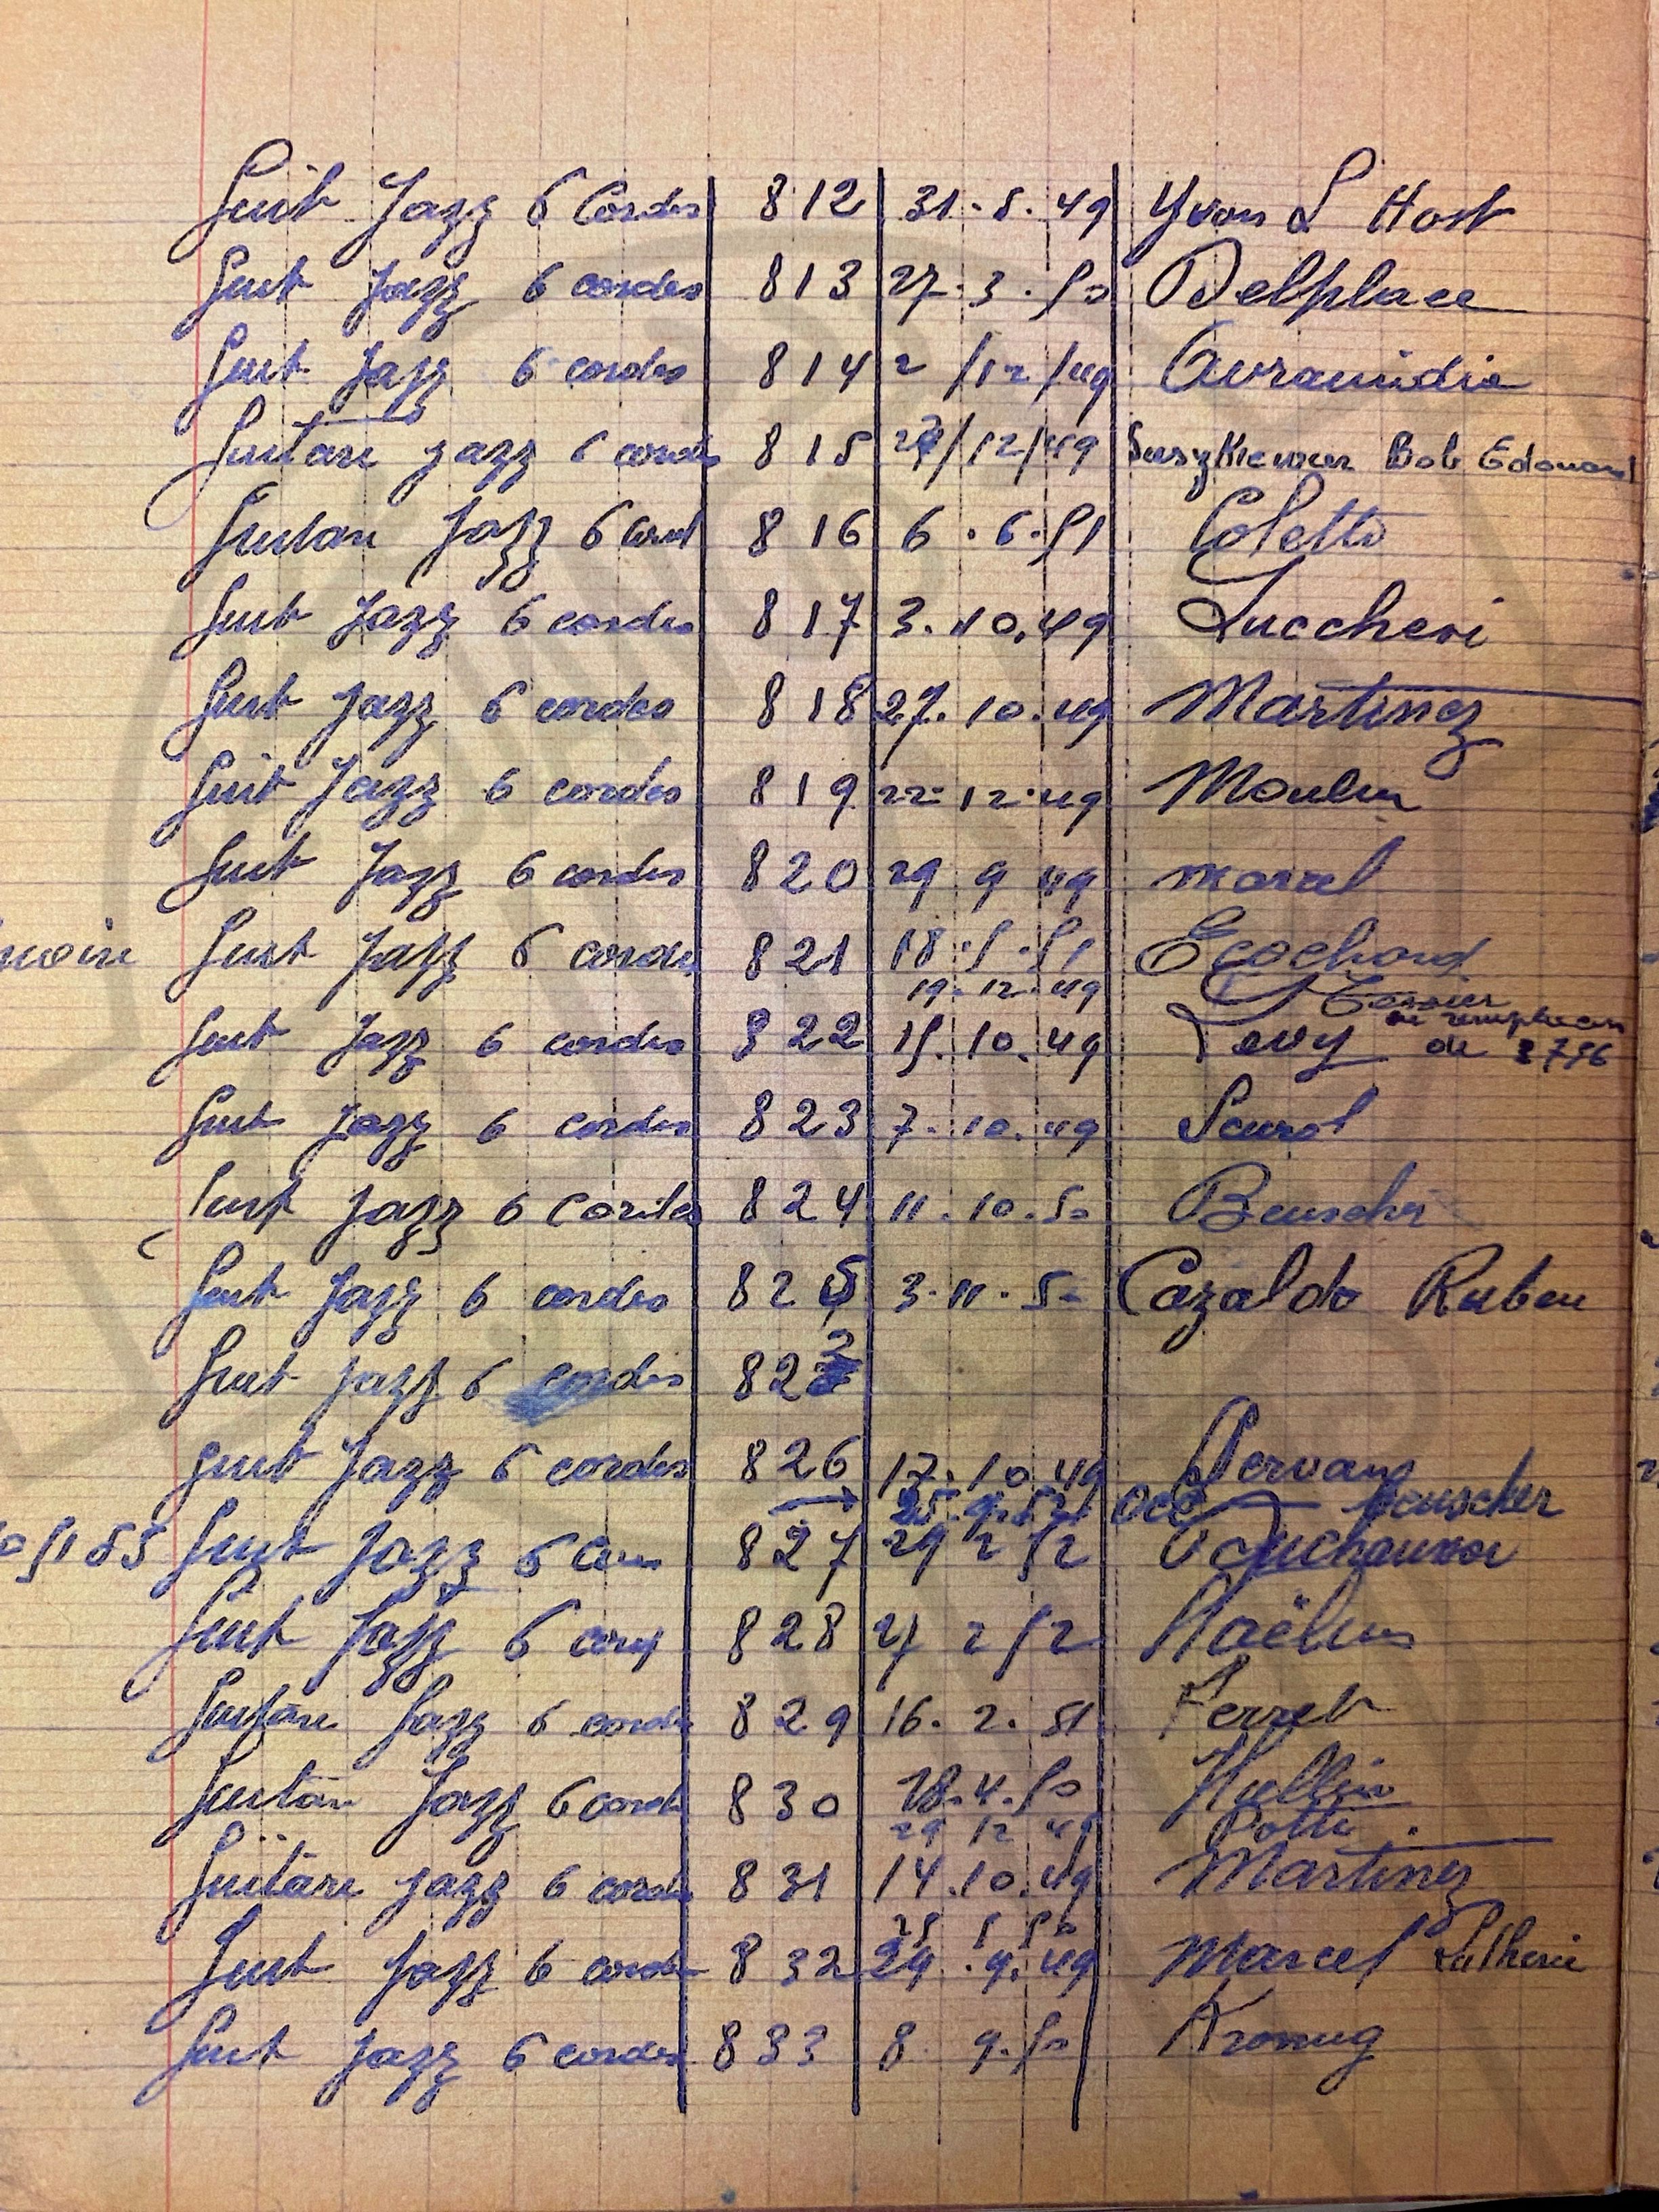 Guit Jazz 6 Cordes 812 31.8.49 Yvon L Host
Guit Jazz 6 cordes 813 27.3.50 Delplace
Guit Jazz 6 cordes 814 2/12/49
Guitare Jazz 6 cordes 815 /12/49 Bob Edouard
Guitare Jazz 6 cord 816 6.6.51 Coletto
Guit Jazz 6 cordes 817 3.10.49 Luccheri
Guit Jazz 6 cordes 818 27.10.49 Martinez
Guit Jazz 6 cordes 819 22.12.49 Moulin
Guit Jazz 6 cordes 820 29 9 49 Marcel
Guit Jazz 6 cordes 821 18.5.51 Ecochard
19.12.49
Guit Jazz 6 cordes 822 15.10.49 Levy
Guit Jazz 6 cordes 823 7.10.49
Guit Jazz 6 Cordes 824 11.10.50 Beuscher
Guit Jazz 6 cordes 825 3.11.50 Cazaldo Ruben
Guit Jazz 6 cordes 82
Guit Jazz 6 cordes 826 17.10.49
Beuscher
Guit Jazz 6 827 29 2 52
Guit Jazz 6 828 2 52
Guitare Jazz 6 cordes 829 16.2.51 Ferret
Guitare Jazz 6 cordes 830 28.4.50 Hullin
29 12 49 Potti
Guitare Jazz 6 cordes 831 14.10.49 Martinez
Guit Jazz 6 cordes 832 29.9.49 Marcel Lutherie
Guit Jazz 6 cordes 833 8.9.50